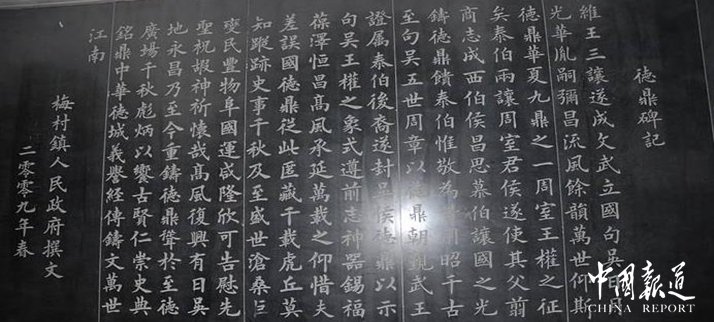 德鼎碑記
維王三讓遂成文武立國句吳日月
光華胤嗣彌昌流風餘韻萬世仰斯
德鼎華夏九鼎之一周室王權之征
矣泰伯兩讓周室君侯遂使其父翦
商志成西伯侯昌思慕伯讓國之光
鑄德鼎饋泰伯惟敬為昭千古
至句吳五世周章以德鼎朝覲武王
證属泰伯後裔遂封吳侯德鼎以示
句吳王權之象式遵前志神器錫福
葆澤恒昌高風承延萬載之仰惜夫
差誤國德鼎從此匿藏千載虎丘莫
知蹤跡史事千秋及至盛世滄桑巨
變民豐物阜國運啟隆欣可告慰先
聖祝嘏神祈懷哉高風復興有日吳
地永昌乃至今重鑄德鼎聳於至德
廣場千秋彪炳以饗古賢仁崇史典
銘鼎中華德城義譽經傳鑄文萬世
江南
梅村鎮人民政府撰文
二零零九年春
中國報道
CHINA REPORT